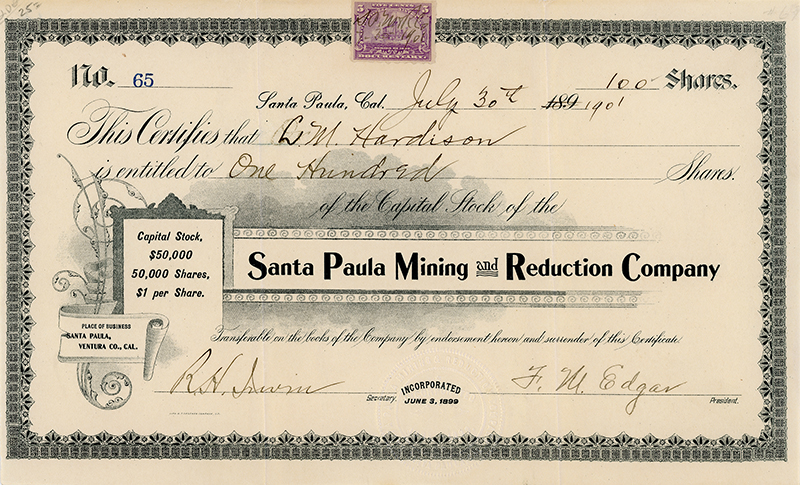 25-
FIVE CENTS
5 5
DOCUMENTARY
No. 65
100 Shares.
Santa Paula, Cal. July 30th 189 1901
This Certifies that L M. Hardison
is entitled to One Hundred Shares.
of the Capital Stock of the
Santa Paula Mining and Reduction Company
Capital Stock,
$50,000
50,000 Shares,
$1 per Share.
PLACE OF BUSINESS
SANTA PAULA,
VENTURA CO., CAL.
Transferable on the books of the Company by endorsement hereon and surrender of this Certificate
R. H. Irwin
Secretary.
INCORPORATED
JUNE 3, 1899
F. M. Edgar
President.